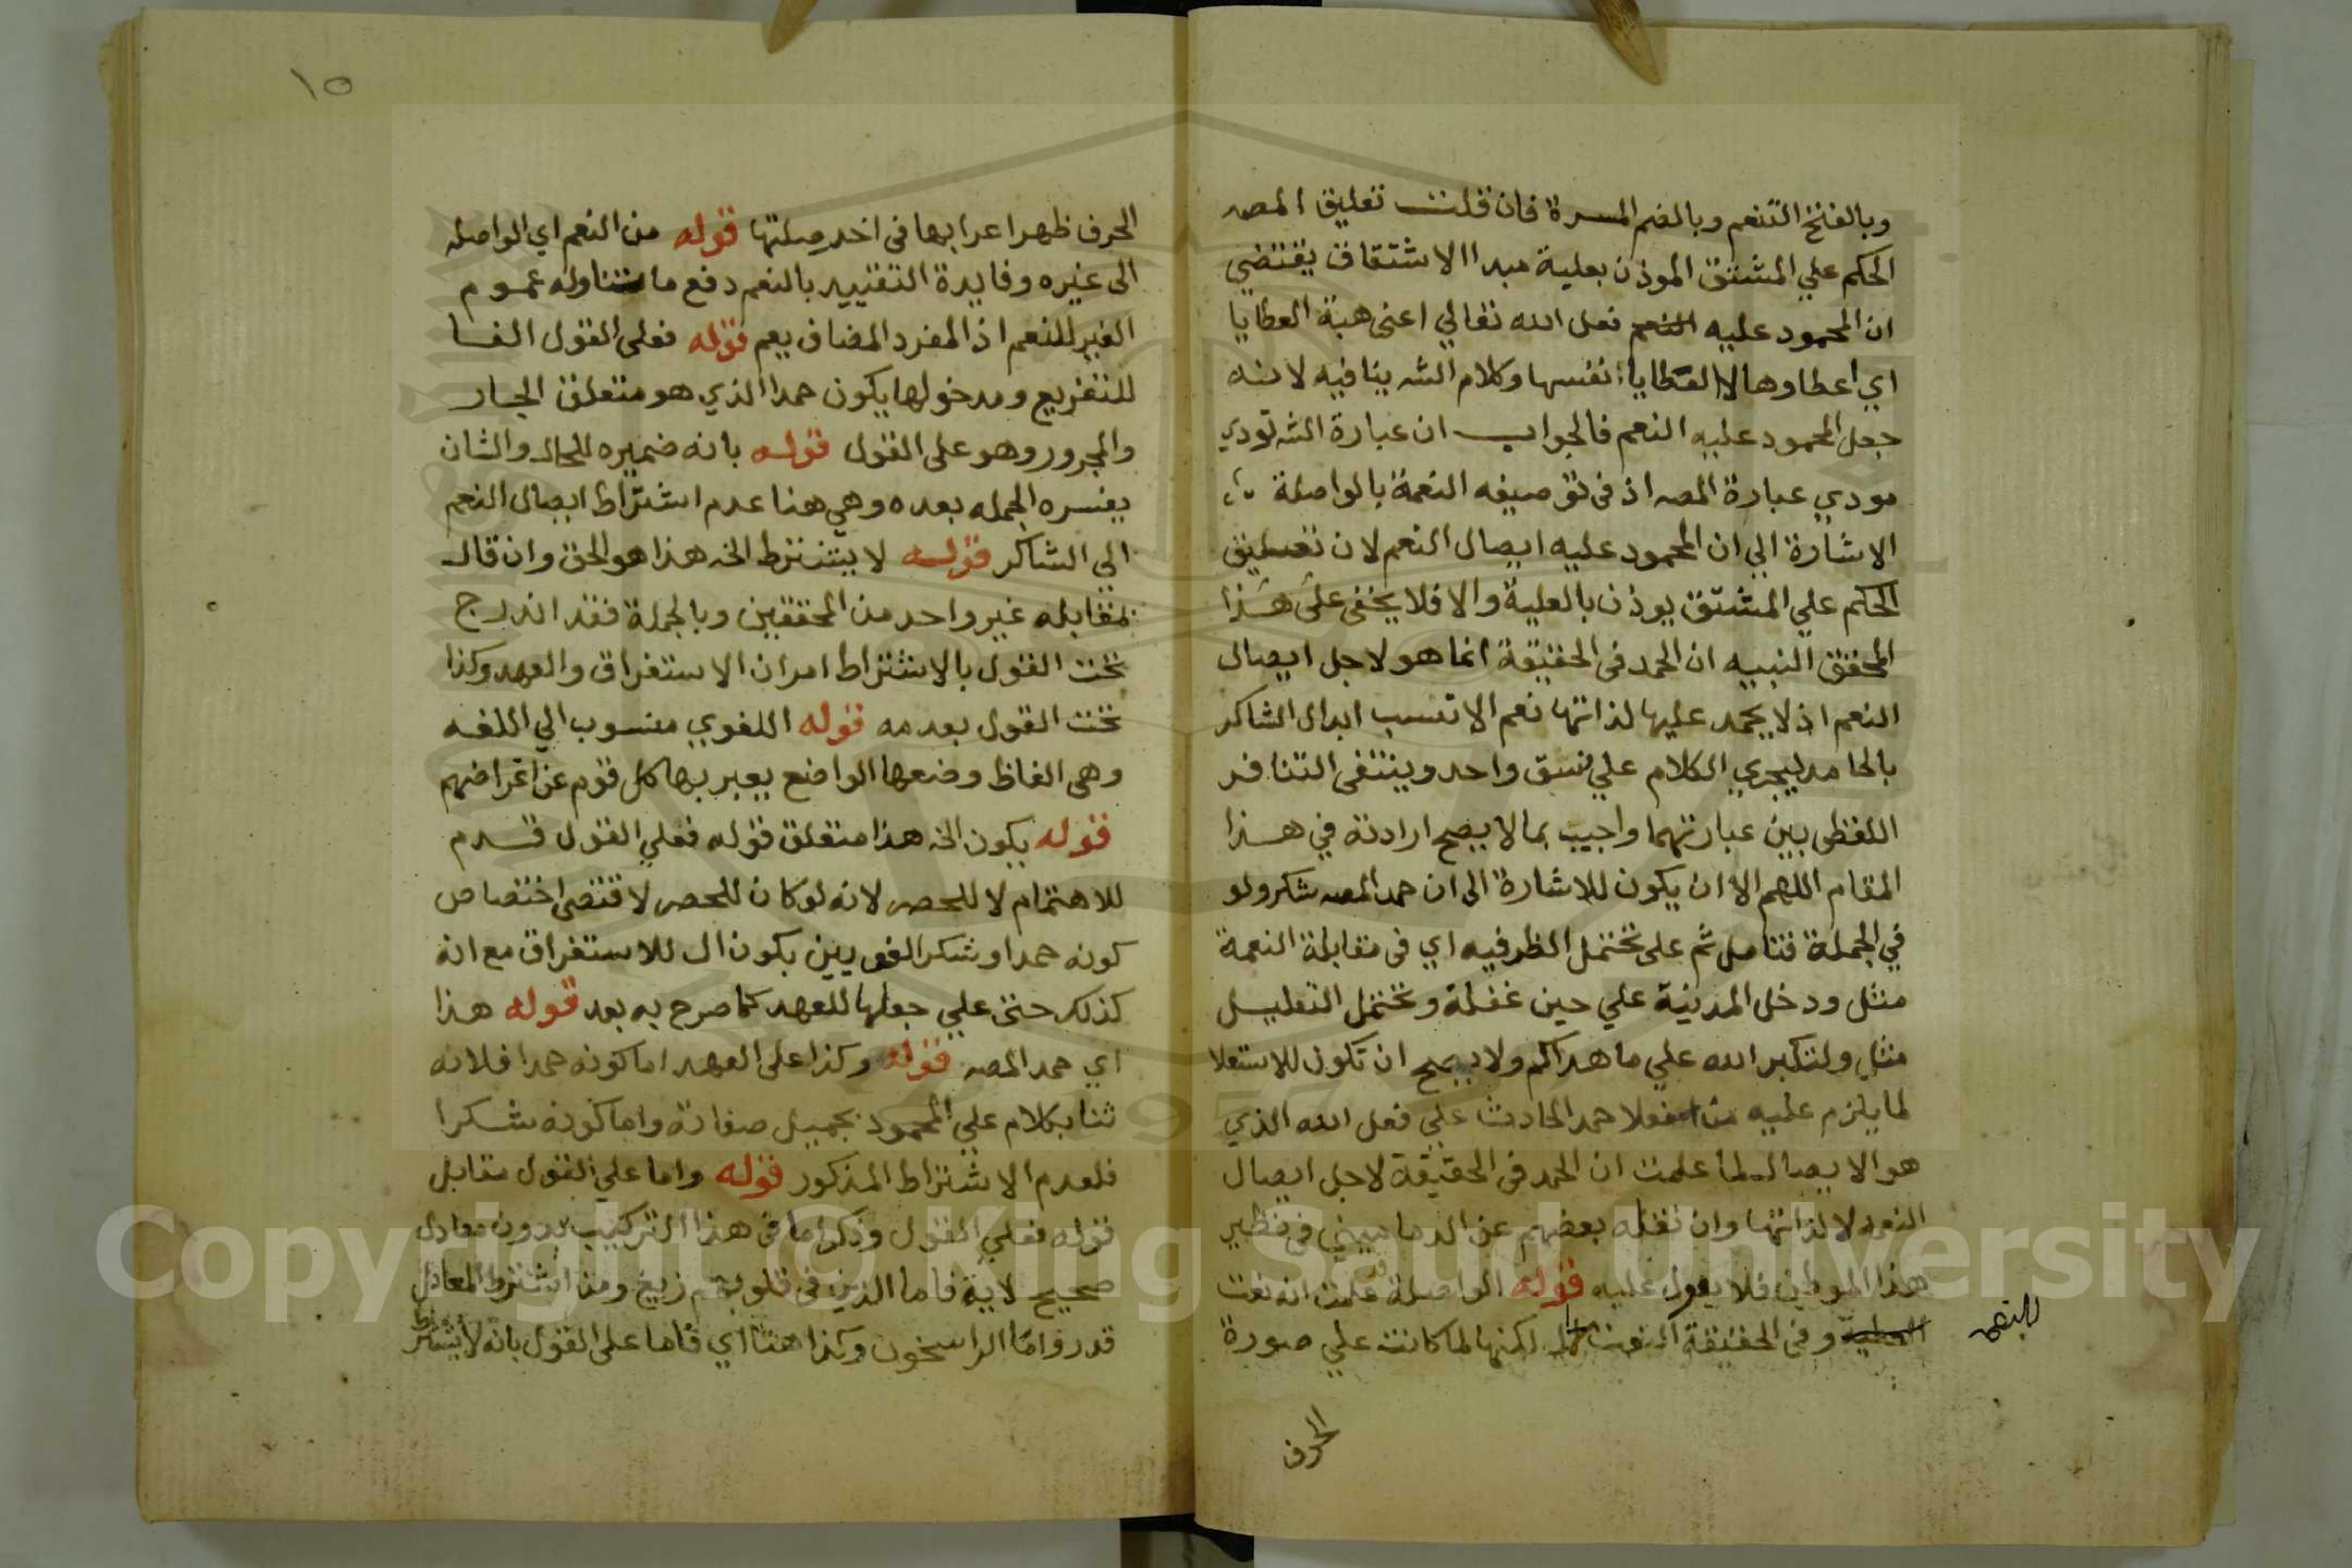 وبالفتح التنعم وبالضم المسرة فان قلت تعليق المصه
الحكم علي المشتق الموذن بعلية مبدا الاشتقاق يقتضي
ان المحمود عليه فعل الله تعالي اعني هبة العطايا
اي اعطاوها لا العطايا انفسها وكلام الشه ينافيه لانه
جعل المحمود عليه النعم فالجواب ان عبارة الشه تودي
مودي عبارة المصه اذ في توصيفه النعمة بالواصلة
الاشارة الي ان المحمود عليه ايصال النعم لان تعليق
الحكم علي المشتق يوذن بالعلية والا فلا يخفي على هذا
المحقق النبيه ان الحمد في الحقيقة انما هو لاجل ايصال
النعم اذ لا يحمد عليها لذاتها نعم الانسب ابدال الشاكر
بالحامد ليجري الكلام علي نسق واحد وينتفي التنافر
اللفظي بين عبارتهما واجيب بما لا يصح ارادته في هذا
المقام اللهم الا ان يكون للاشارة الى ان حمد المصه شكر ولو
في الجملة فتامل ثم على تحتمل الظرفيه اي في مقابلة النعمة
مثل ودخل المدينة علي حين غفلة وتحتمل التعليل
مثل ولتكبر الله علي ما هداكم ولا يصح ان تكون للاستعلا
لما يلزم عليه من حمد الحادث علي فعل الله الذي
هو الايصال لما علمت ان الحمد في الحقيقة لاجل ايصال
النعمه لا لذاتها وان نقله بعضهم عن الدماميني في نظير
هذا الموطن فلا يعول عليه قوله الواصلة علمت انه نعت
وفي الحقيقة النعت لكنها لما كانت علي صورة
للنعم
الحرف
١٥
الحرف ظهر اعرابها في اخر صلتها قوله من النعم اي الواصله
الى غيره وفايدة التقييد بالنعم دفع ما تناوله عموم
الغير للنعم اذ المفرد المضاف يعم قوله فعلى القول الفا
للتفريع ومدخولها يكون حمدا الذي هو متعلق الجار
والمجرور وهو على القول قوله بانه ضميره للحال والشان
يفسره الجمله بعده وهي هنا عدم اشتراط ايصال النعم
الي الشاكر قوله لا يشترط الخ هذا هو الحق وان قال
بمقابله غير واحد من المحققين وبالجملة فقد اندرج
تحت القول بالاشتراط امران الاستغراق والعهد وكذا
تحت القول بعدمه قوله اللغوي منسوب الي اللغه
وهي الفاظ وضعها الواضع يعبر بها كل قوم عن اغراضهم
قوله يكون الخ هذا متعلق قوله فعلي القول قدم
للاهتمام لا للحصر لانه لو كان للحصر لاقتضى اختصاص
كونه حمدا وشكرا لغويين بكون ال للاستغراق مع انه
كذلك حتى علي جعلها للعهد كما صرح به بعد قوله هذا
اي حمد المصه قوله وكذا على العهد اما كونه حمدا فلانه
ثنا بكلام علي المحمود بجميل صفاته واما كونه شكرا
فلعدم الاشتراط المذكور قوله واما علي القول مقابل
قوله فعلي القول وذكر اما في هذا التركيب بدون معادل
صحيح لاية فاما الذين في قلوبهم زيغ ومن اشترط المعادل
قدر واما الراسخون وكذا هنا اي فاما على القول بانه لا يشترط